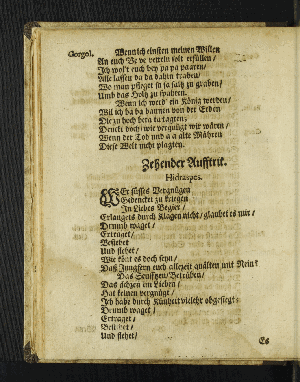 Gorgol. Wenn ich einsten meinen Willen
An euch Ve ve vetteln solt erfüllen /
Ich wolt euch bey pa pa paaren /
Alle lassen da da dahin traben /
Wo man pfleget
Umb das Holtz zu
Wenn ich werd' ein König werden /
Wil ich ba ba bannen von der Erden
Die zu hoch beta ta tagten;
Denckt doch / wie vergnügt wir wären /
Wenn der Tod und a a alte
Diese Welt nicht plagten.
Zehender Aufftrit.
Hidraspes.
WEr süsses Vergnügen
Gedencket zu kriegen
In Liebes Begier /
Erlangets durch Klagen nicht / glaubet es mir /
Drumb waget /
Ertraget /
Bestehet
Und flehet /
Wie könt es doch seyn /
Daß Jungfern euch allezeit quälten mit Nein?
Das Seufftzen / Betrüben /
Das ächzen im Lieben /
Hat keinen vergnügt /
Ich habe durch Künheit vielehr obgesiegt:
Drumb waget /
Ertraget /
Bestehet /
Und flehet /
Es